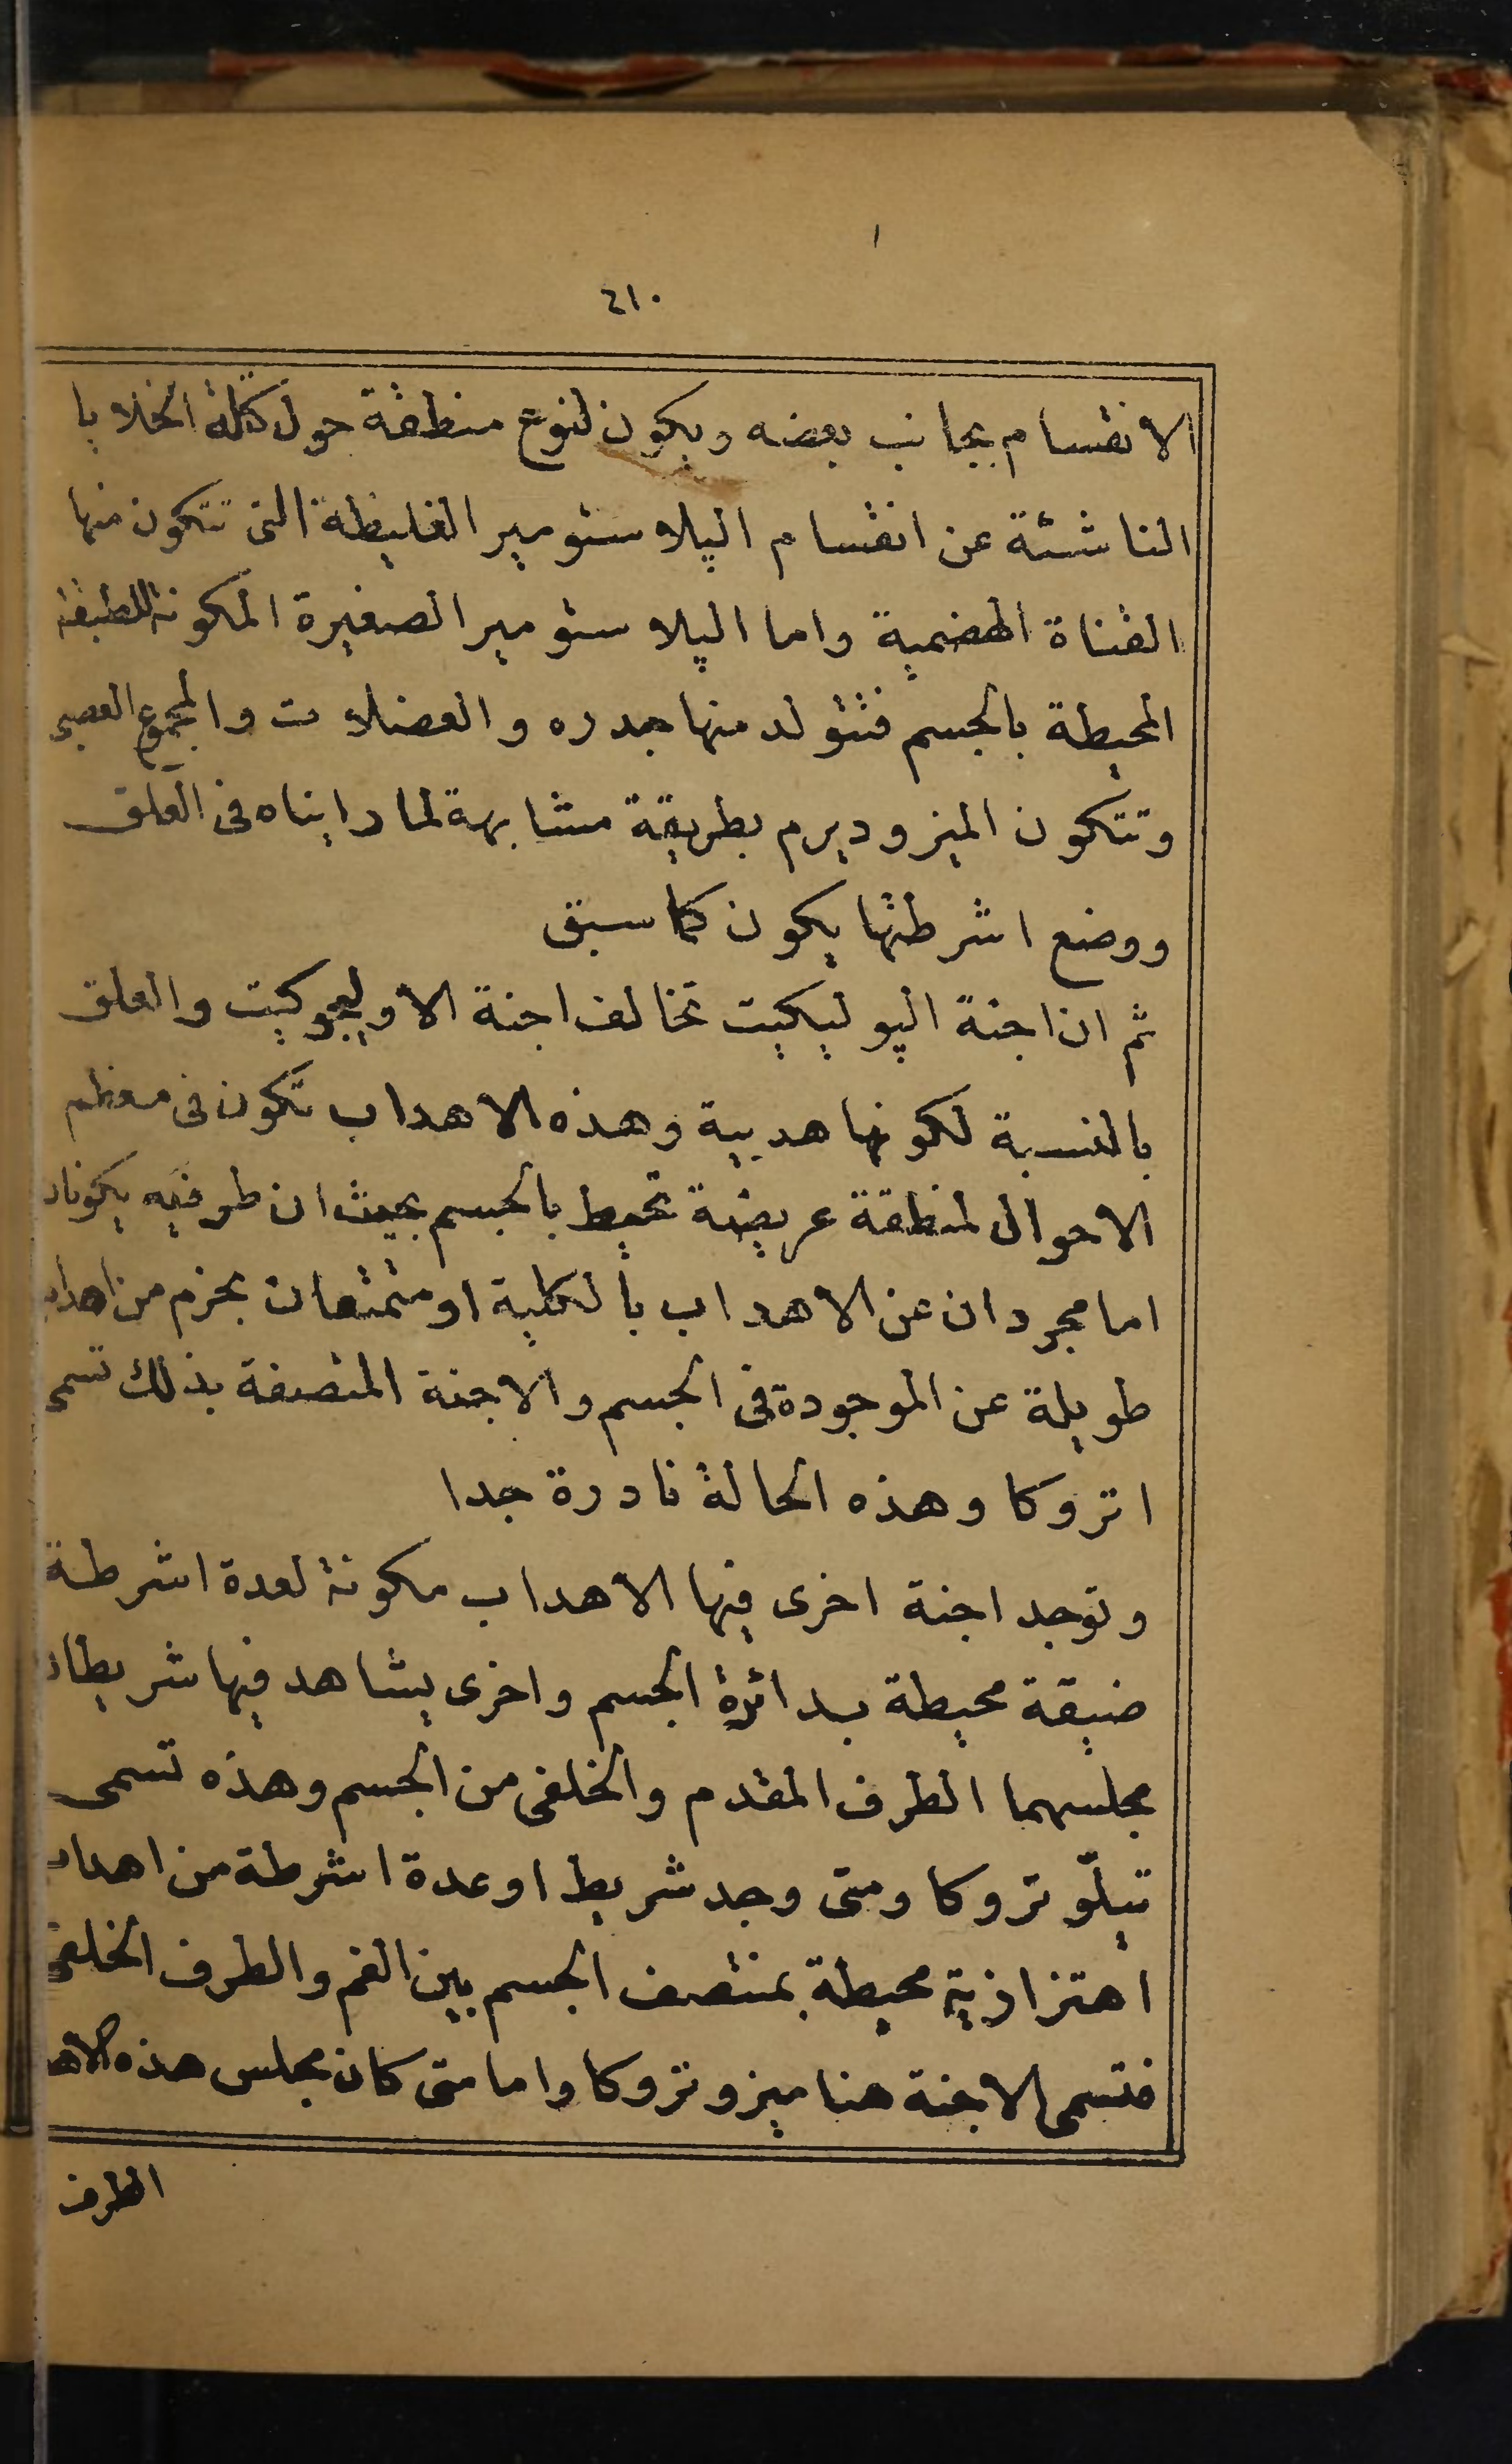 ٤١٠
الانقسام بجانب بعضه ويكون لنوع منطقة حول كتلة الخلايا
الناشئة عن انقسام الپلاستومير الغليظة التى تتكون منها
القناة الهضمية واما الپلاستومير الصغيرة المكونة للطبقة
المحيطة بالجسم فتتولد منها جدره والعضلات والمجموع العصبى
وتتكون الميزوديرم بطريقة مشابهة لما رايناه فى العلق
ووضع اشرطتها يكون كما سبق
ثم ان اجنة الپوليكيت تخالف اجنة الاوليجوكيت والعلق
بالنسبة لكونها هدبية وهذه الاهداب تكون فى معظم
الاحوال لمنطقة عريضة تحيط بالجسم بحيث ان طرفيه يكونان
اما مجردان عن الاهداب بالكلية او متمتعان بحزم من اهداب
طويلة عن الموجودة فى الجسم والاجنة المتصفة بذلك تسمى
اتروكا وهذه الحالة نادرة جدا
وتوجد اجنة اخرى فيها الاهداب مكونة لعدة اشرطة
ضيقة محيطة بدائرة الجسم واخرى يشاهد فيها شريطان
مجلسهما الطرف المقدم والخلفى من الجسم وهذه تسمى
تيلّوتروكا ومتى وجد شريط او عدة اشرطة من اهداب
اهتزازية محيطة بمنتصف الجسم بين الفم والطرف الخلفى
فتسمى الاجنة هنا ميزوتروكا واما متى كان مجلس هذه
الطرف